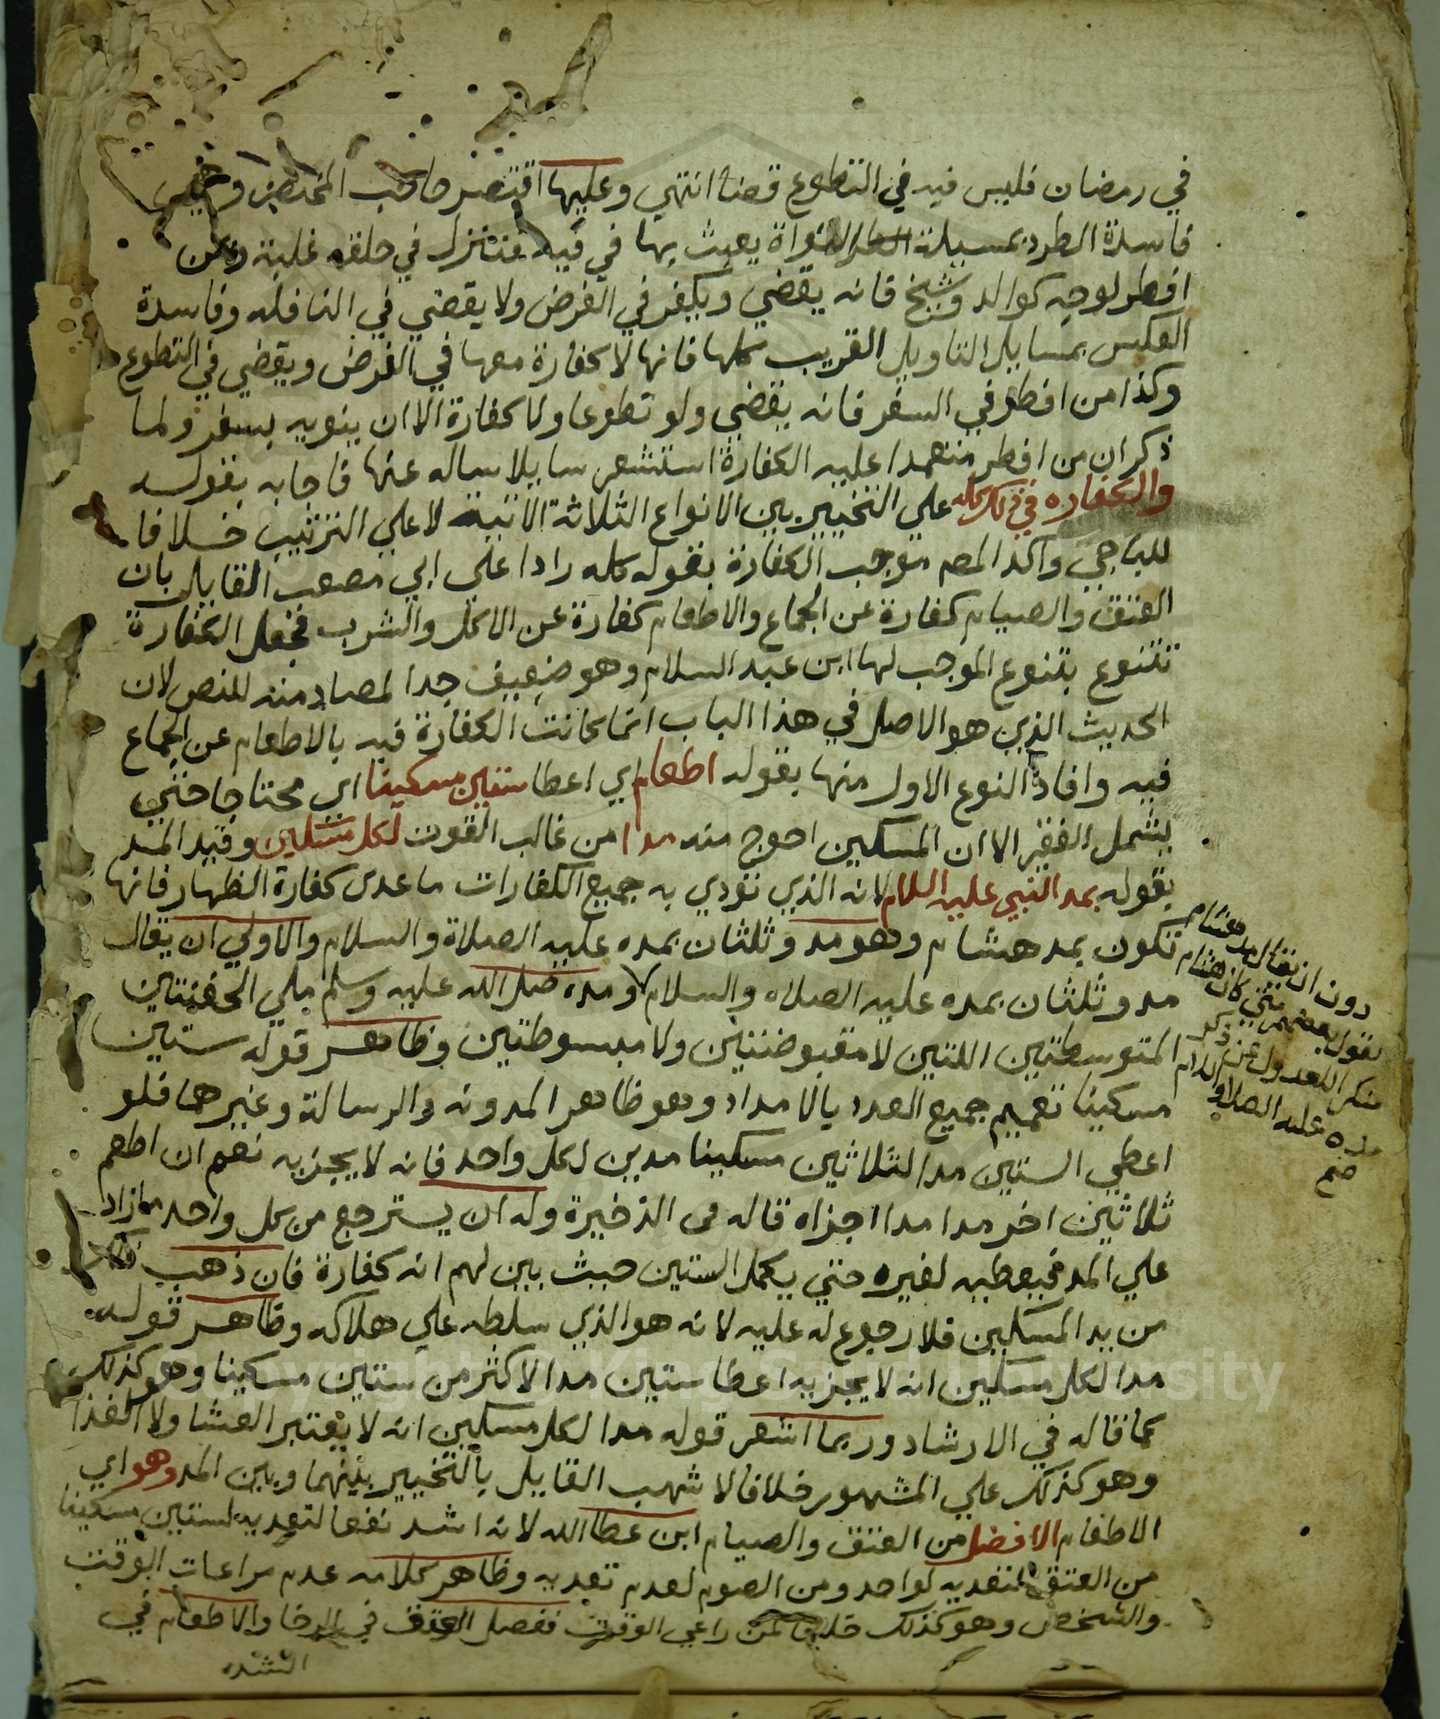 في رمضان فليس فيه في التطوع قضا انتهي وعليها اقتصر صاحب المختصر وهي
فاسدة الطرد بمسيلة النواة يعبث بها في فيه فتنزل في حلقه غلبة وبمن
افطر لوجه كوالد وشيخ فانه يقضي ويكفر في الفرض ولا يقضي في النافله وفاسدة
العكس بمسايل التاويل القريب كلها فانها لا كفارة معها في الفرض ويقضي في التطوع
وكذا من افطر في السفر فانه يقضي ولو تطوعا ولا كفارة الا ان ينويه بسفر ولما
ذكر ان من افطر متعمدا عليه الكفارة استشعر سايلا ساله عنها فاجابه بقوله
والكفاره في ذلك كله علي التخيير بين الانواع الثلاثة الاتية لا علي الترتيب خلافا
للباجي واكد المص موجب الكفارة بقوله كله رادا علي ابي مصعب القايل بان
العتق والصيام كفارة عن الجماع والاطعام كفارة عن الاكل والشرب فجعل الكفارة
تتنوع بتنوع الموجب لها ابن عبد السلام وهو ضعيف جدا لمصادمته للنص لان
الحديث الذي هو الاصل في هذا الباب انما كانت الكفارة فيه بالاطعام عن الجماع
فيه وافاد النوع الاول منها بقوله اطعام اي اعطا ستين مسكينا اي محتاجا حتي
يشمل الفقير الا ان المسكين احوج منه مدا من غالب القوت لكل مسكين وقيد المد
بقوله بمد النبي عليه السلام لانه الذي تودي به جميع الكفارات ما عدى كفارة الظهار فانها
تكون بمد هشام وهو مد وثلثان بمده عليه الصلاة والسلام والاولي ان يقال
مد وثلثان بمده عليه الصلاه والسلام ومده صلى الله عليه وسلم ملي الحفنتين
المتوسطتين اللتين لا مقبوضتين ولا مبسوطتين وظاهر قوله ستين
مسكينا تعميم جميع العدد بالامداد وهو ظاهر المدونه والرسالة وغيرهما فلو
اعطي الستين مدا لثلاثين مسكينا مدين لكل واحد فانه لا يجزيه نعم ان اطعم
ثلاثين اخر مدا مدا اجزاه قاله في الذخيرة وله ان يسترجع من كل واحد ما زاد
علي المد فيعطيه لغيره حتي يكمل الستين حيث بين لهم انه كفارة فان ذهب ذلك
من يد المسكين فلا رجوع له عليه لانه هو الذي سلطه علي هلاكه وظاهر قوله
مدا لكل مسكين انه لا يجزيه اعطا ستين مدا لاكثر من ستين مسكينا وهو كذلك
كما قاله في الارشاد وربما اشعر قوله مدا لكل مسكين انه لا يعتبر العشا ولا الغذا
وهو كذلك علي المشهور خلافا لاشهب القايل بالتخيير بينهما وبين المد وهو اي
الاطعام الافضل من العتق والصيام ابن عطا الله لانه اشد نفعا لتعديه لستين مسكينا
من العتق لتعديه لواحد ومن الصوم لعدم تعديه وظاهر كلامه عدم مراعات الوقت
والشخص وهو كذلك خلافا لمن راعي الوقت ففضل العتق في الرخا والاطعام في
الشده
دون ان يقال مد هشام
بقول بعضهم متي كان هشام
منكر اللعدول عن ذكر
مده عليه الصلاة والسلام
صح